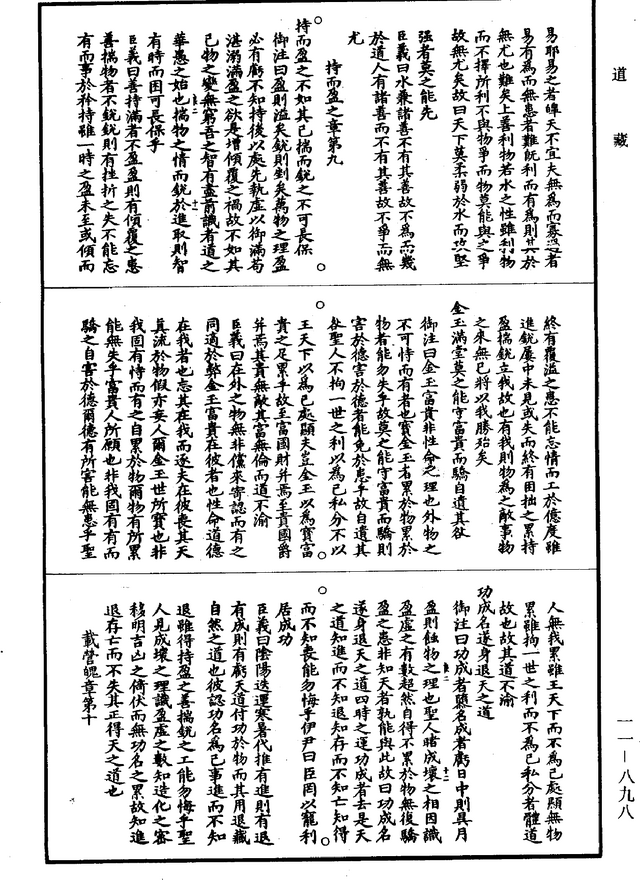 道藏
易耶易之者暤天不宜夫無為而寡過者
易有為而無患者難既利而有為則其於
無尤也難矣上善利物若水之性雖利物
而不擇所利不與物爭而物莫能與之爭
故無尤矣故曰天下莫柔弱於水而攻堅
强者莫之能先
臣義曰水兼諸善不有其善故不為而幾
於道人有諸善而不有其善故不爭而無
尤
持而盈之章第九
持而盈之不如其已揣而銳之不可長保
御注曰盈則溢矣銳則剉矣萬物之理盈
必有虧不知持後以處先執虛以御滿苟
湛溺滿盈之欲是增傾覆之禍故不如其
已物之變無窮吾之智有盡前識者道之
華愚之始也揣物之情而銳於進取則智
有時而困可長保乎
臣義曰善持滿者不盈盈則有傾覆之患
善揣物者不銳銳則有挫折之失不能忘
有而事於矜持雖一時之盈未至或傾而
終有覆溢之患不能忘情而工於億度雖
進銳屢中未見或失而終有困拙之累持
盈揣銳立我故也有我則物為之敵事物
之來無已將以我勝殆矣
金玉滿堂莫之能守富貴而驕自遺其咎
御注曰金玉富貴非性命之理也外物之
不可恃而有者也寶金玉者累於物累於
物者能勿失乎故莫之能守富貴而驕則
害於德害於德者能免於患乎故自遺其
咎聖人不拘一世之利以為己私分不以
王天下以為己處顯夫豈金玉以為寶富
貴之足累乎故至富國財并焉至貴國爵
并焉其貴無敵其富無倫而道不渝
臣義曰在外之物無非儻來寄認而有之
同適於弊金玉富貴在彼者也性命道德
在我者也忘其在我而逐夫在彼喪其天
真流於物假亦妄人爾金玉世所寶也非
我固有恃而有之自累於物爾物有所累
能無失乎富貴人所願也非我固有有而
驕之自害於德爾德有所害能無患乎聖
人無我累雖王天下而不為己處顯無物
累雖拘一世之利而不為己私分者體道
故也故其道不渝
功成名遂身退天之道
御注曰功成者隳名成者虧日中則昃月
盈則蝕物之理也聖人睹成壞之相因識
盈虛之有數超然自得不累於物無復驕
盈之患非知天者孰能與此故曰功成名
遂身退天之道四時之運功成者去是天
之道知進而不知退知存而不知亡知得
而不知喪能勿悔乎伊尹曰臣罔以寵利
居成功
臣義曰陰陽迭運寒暑代推有進則有退
有成則有虧天道付功於物而其用退藏
自然之道也彼認功名為己事進而不知
退雖得持盈之善揣銳之工能勿悔乎聖
人見成壞之理識盈虛之數知造化之密
移明吉凶之倚伏而無功名之累故知進
退存亡而不失其正得天之道也
載營魄章第十
一一—八九八